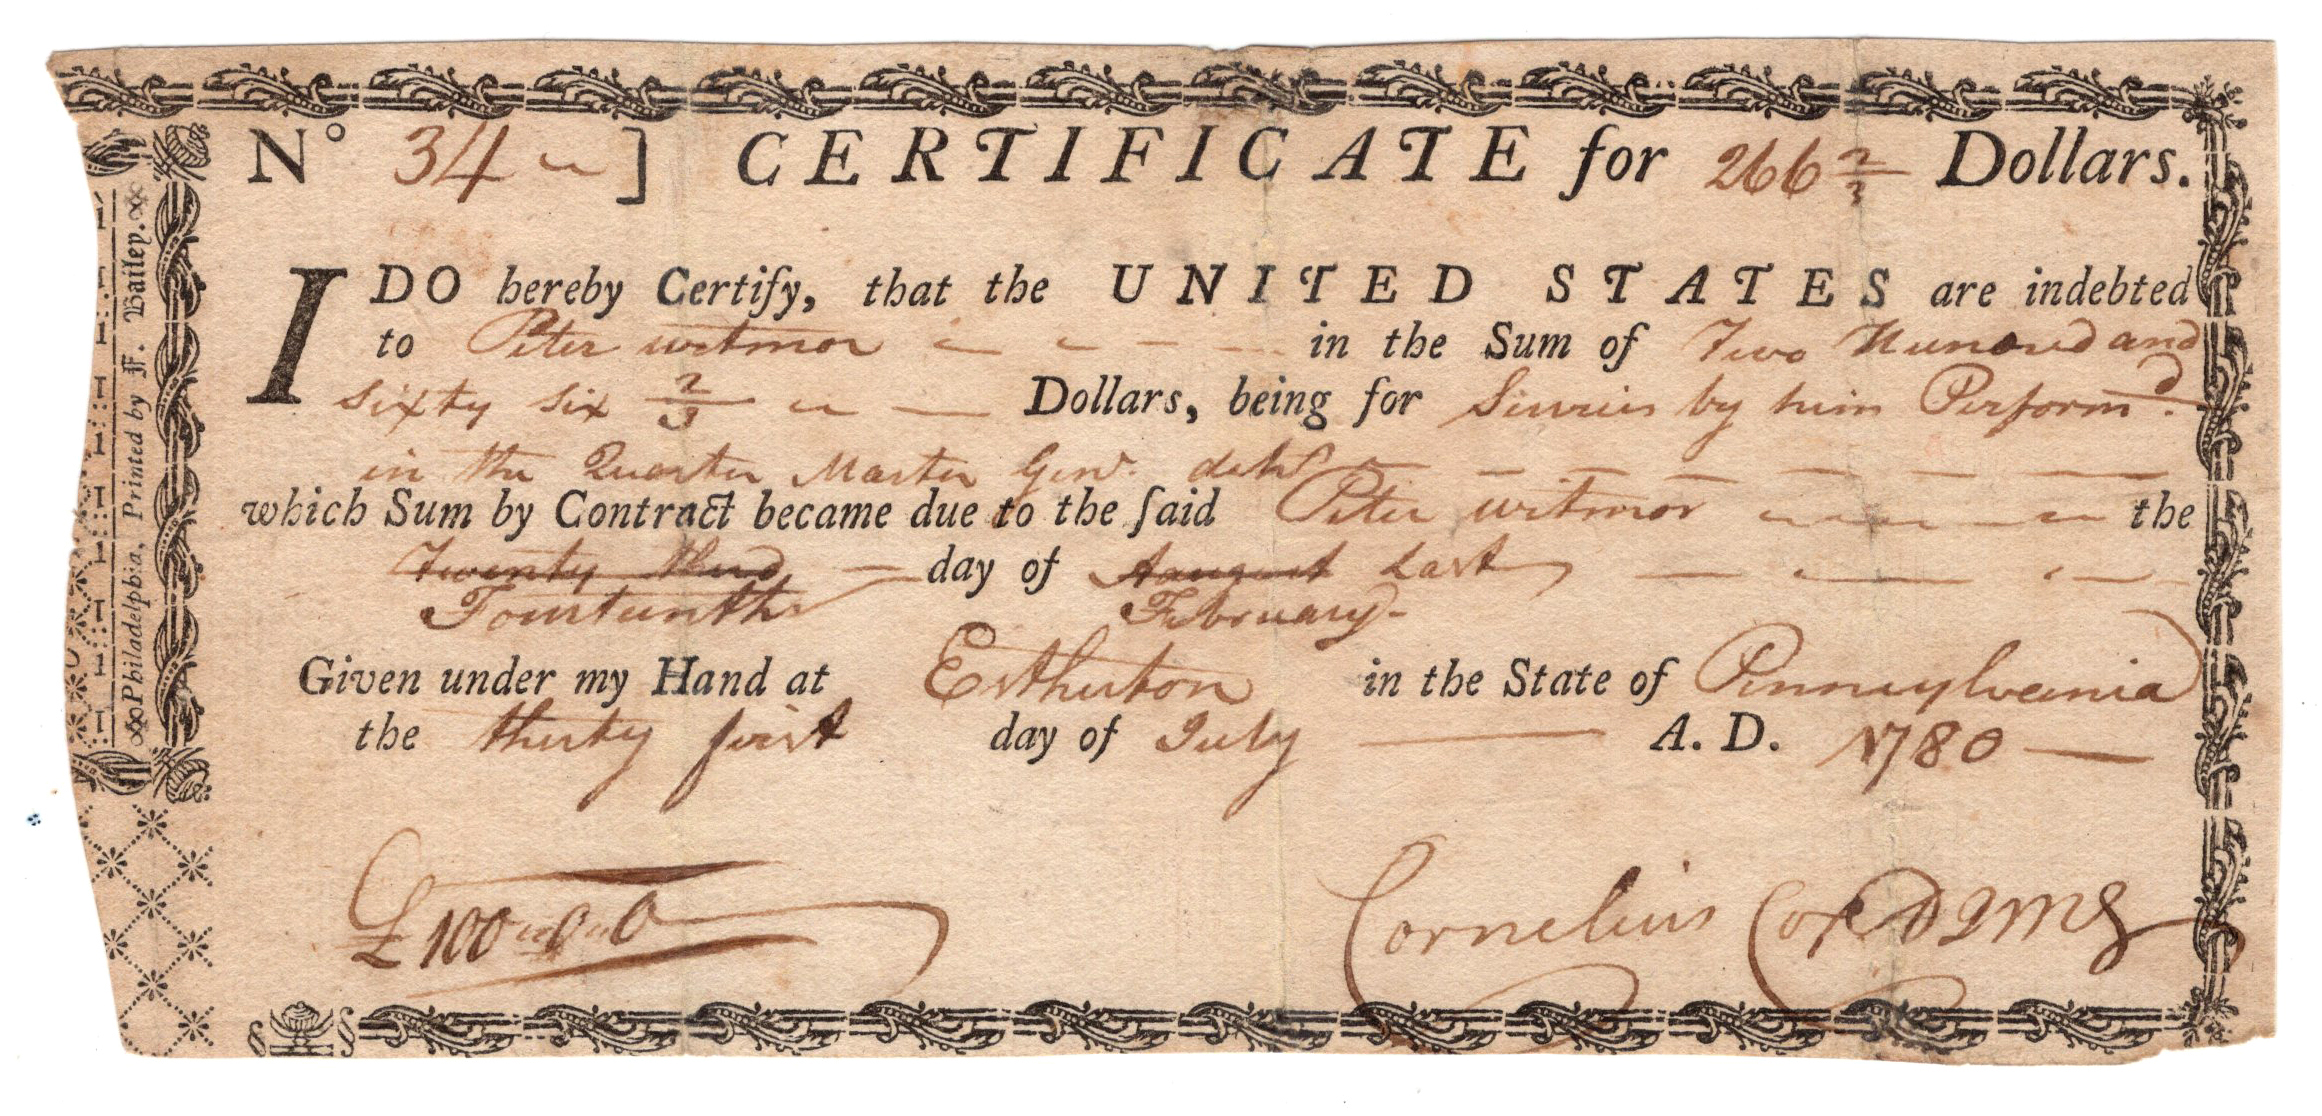 No 34 ] CERTIFICATE for 266 2/3 Dollars.
I DO hereby Certify, that the UNITED STATES are indebted
to Peter witmor in the Sum of Two Hundred and
Sixty Six 2/3 Dollars, being for Servies by him Perform'd.
in the Quarter Master Genl. debt
which Sum by Contract became due to the ſaid Peter witmor the
Twenty third day of August Last
Fourteenth February
Given under my Hand at Estherton in the State of Pennsylvania
the thirty first day of July A. D. 1780
£100 0 0 Cornelius Cox DQMG
Philadelphia, Printed by F. Bailey.